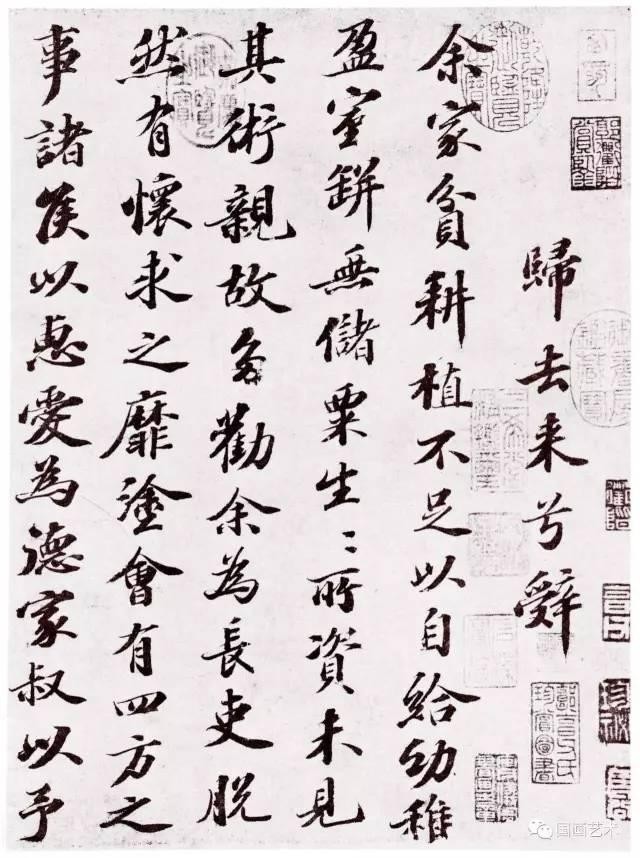 歸去来兮辭
余家貧耕植不足以自給幼稚
盈室缾無儲粟生〻所資未見
其術親故多勸余為長吏脫
然有懷求之靡塗會有四方之
事諸侯以惠愛為德家叔以予
国画艺术